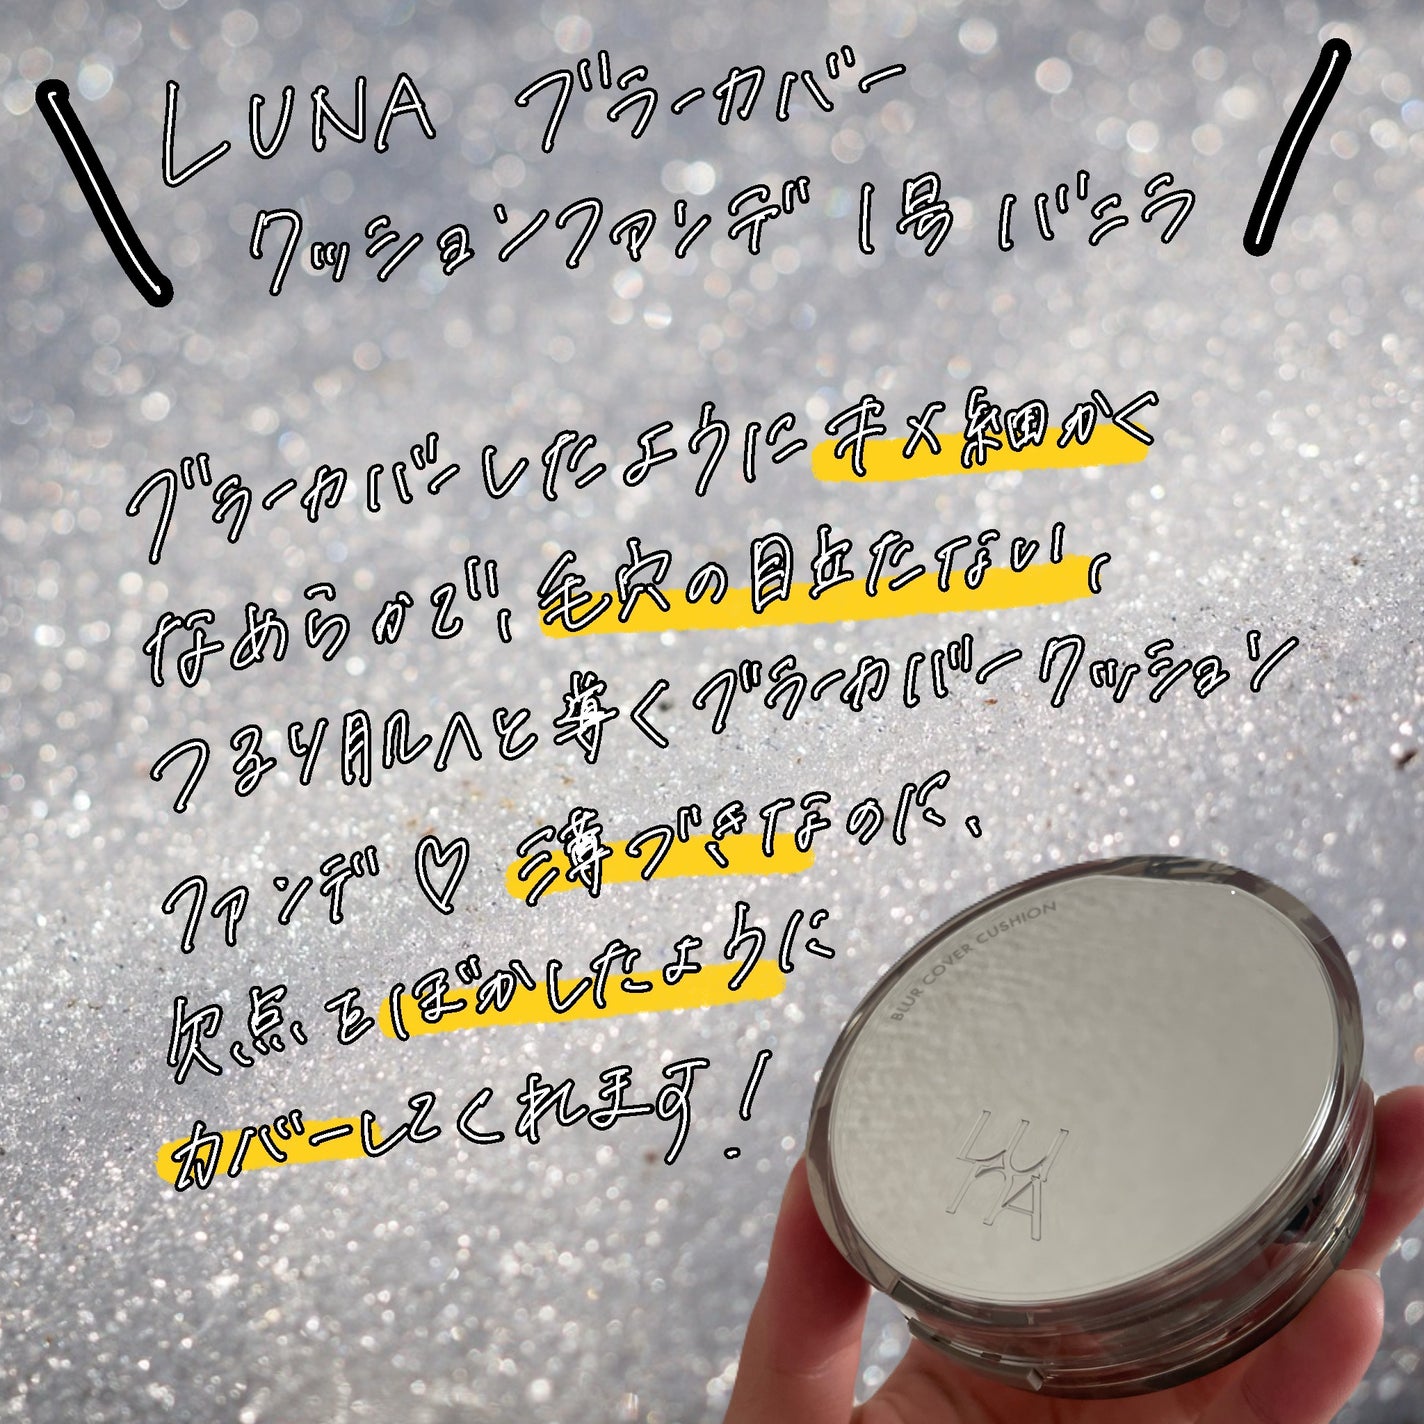 LUNA ブラーカバー
クッションファンデ 1号 バニラ
ブラーカバーしたようにキメ細かく
なめらかで、毛穴の目立たない、
つるり肌へと導くブラーカバークッション
ファンデ♡ 薄づきなのに、
欠点をぼかしたように
カバーしてくれます!
BLUR COVER CUSHION
LU
nA